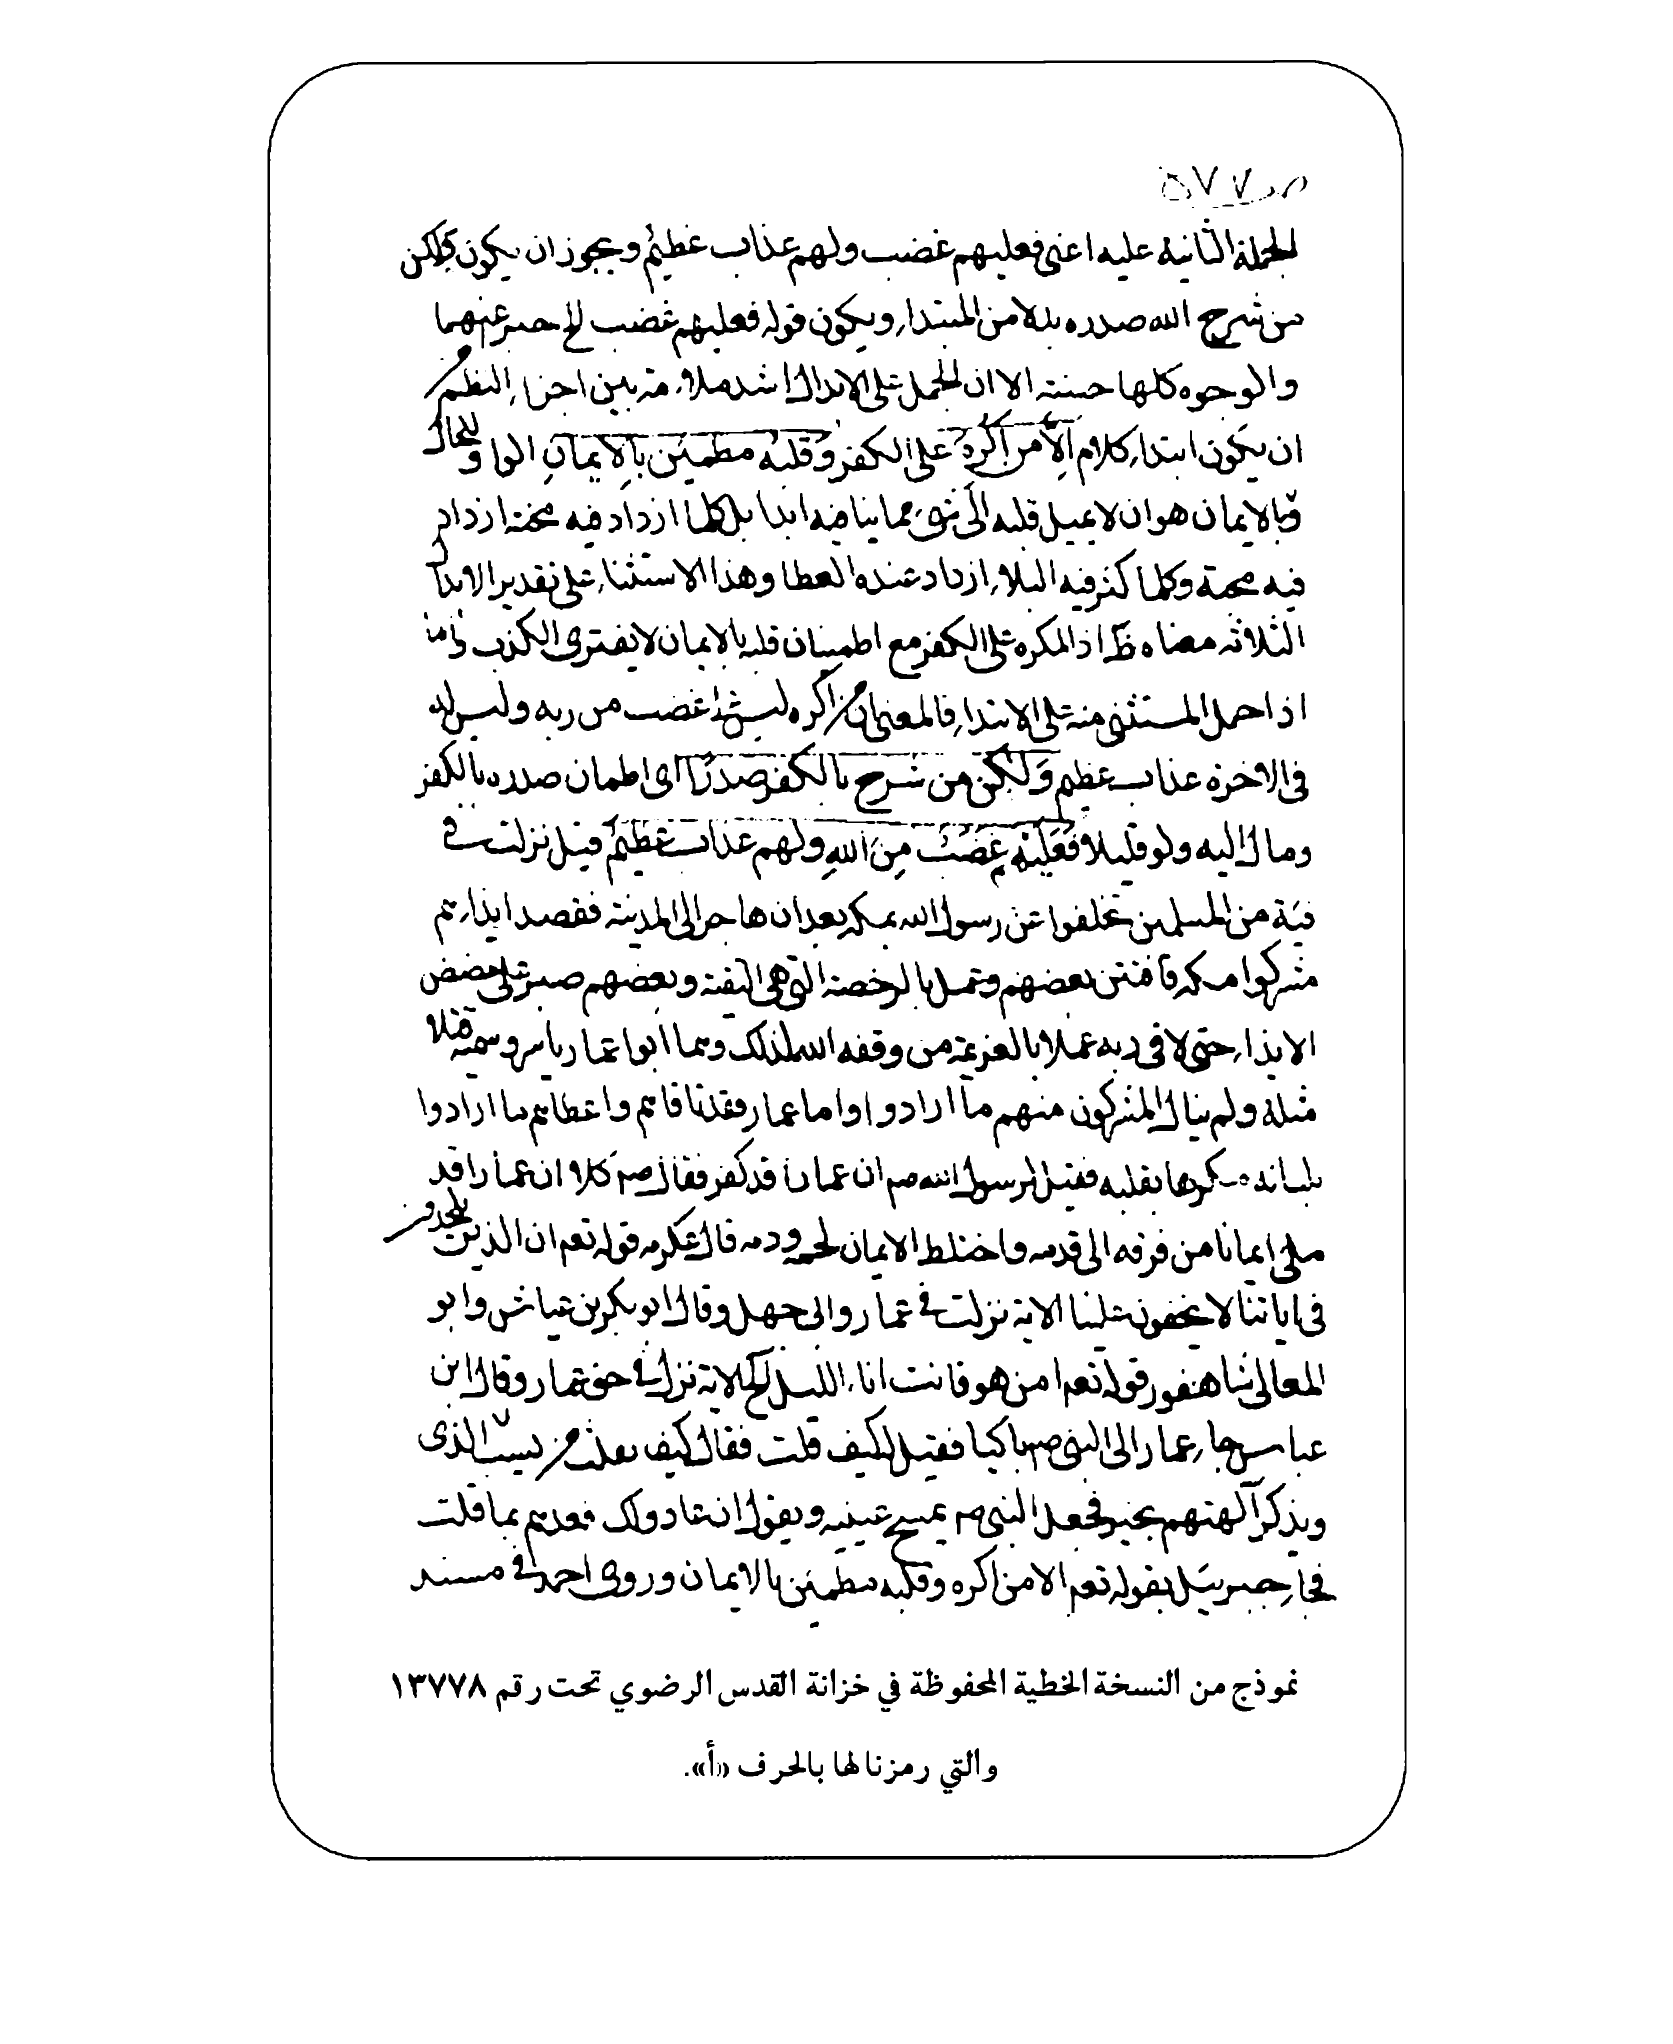 صـ ٥٧٧
الجملة الثانية عليه اعنى فعليهم غضب ولهم عذاب عظيم ويجوز ان يكون ولكن
من شرح الله صدره بدلا من المبتداء ويكون قوله فعليهم غضب الخ خبر عنهما
والوجوه كلها حسنة الا ان الحمل على الابدال اشد ملاءمة بين اجزاء النظم من
ان يكون ابتداء كلام اِلاّ من اُكره على الكفر وقلبه مطمئن بِالايمانِ الواو للحال
وبالايمان هو ان لا يميل قلبه الى شىء مما ينافيه ابدا بل كلما ازداد فيه محنة ازداد
فيه محبة وكلما كثر فيه البلاء ازداد عنده العطا وهذا الاستثناء على تقدير الابدال
الثلاثة معناه ظ اذ المكره على الكفر مع اطمينان قلبه بالايمان لا يفترى الكذب واما
اذا حمل المستثنى منه على الابتداء فالمعنى ان من اكره ليس عليه غضب من ربه وليس له
فى الاخرة عذاب عظيم وَلكِن من شرح بالكفر صدرًا اى اطمان صدره بالكفر
ومال اليه ولو قليلا فَعَلَيْهِم غَضَبٌ مِنَ اللهِ ولهم عذاب عظيمٌ قيل نزلت في
فئة من المسلمين تخلفوا عن رسول الله بمكه بعد ان هاجر الى المدينة فقصد ايذاءهم
مشركوا مكه فافتتن بعضهم وعمل بالرخصة التى هى التقية وبعضهم صبر على مضض
الايذاء حتى لاقى ربه عملا بالعزيمة من وقفه الله لذلك وهما ابوا عمار ياسر وسمية قتلا
مثله ولم ينال المشركون منهم ما ارادوا واما عمار فقد نافاهم واعطاهم ما ارادوا
بلسانه مكرها بقلبه فقيل لرسول الله صم ان عمارا قد كفر فقال صم كلا ان عمارا قد
ملئ ايمانا من فرقه الى قدمه واختلط الايمان لحمه ودمه قال عكرمه قوله تعم ان الذين يلحدون
فى اياتنا لا يخفون علينا الاية نزلت في عمار وابى جهل وقال ابو بكر بن عياش وابو
المعالى شاهفور قوله تعم امن هو قانت اناء الليل الخ الاية نزل في حق عمار وقال ابن
عباس جاء عمار الى النبى صم باكيا فقيل له كيف قلت فقال كيف يفلت من يسب الذى
ويذكر آلهتهم بخير فجعل النبى صم يمسح عينيه ويقول ان عادوا لك فعدهم بما قلت
فجاء جبرئيل بقوله تعم الا من اكره وقلبه مطمئن بالايمان وروى احمد في مسند
نموذج من النسخة الخطية المحفوظة في خزانة القدس الرضوي تحت رقم ١٣٧٧٨
والتي رمزنا لها بالحرف «أ».